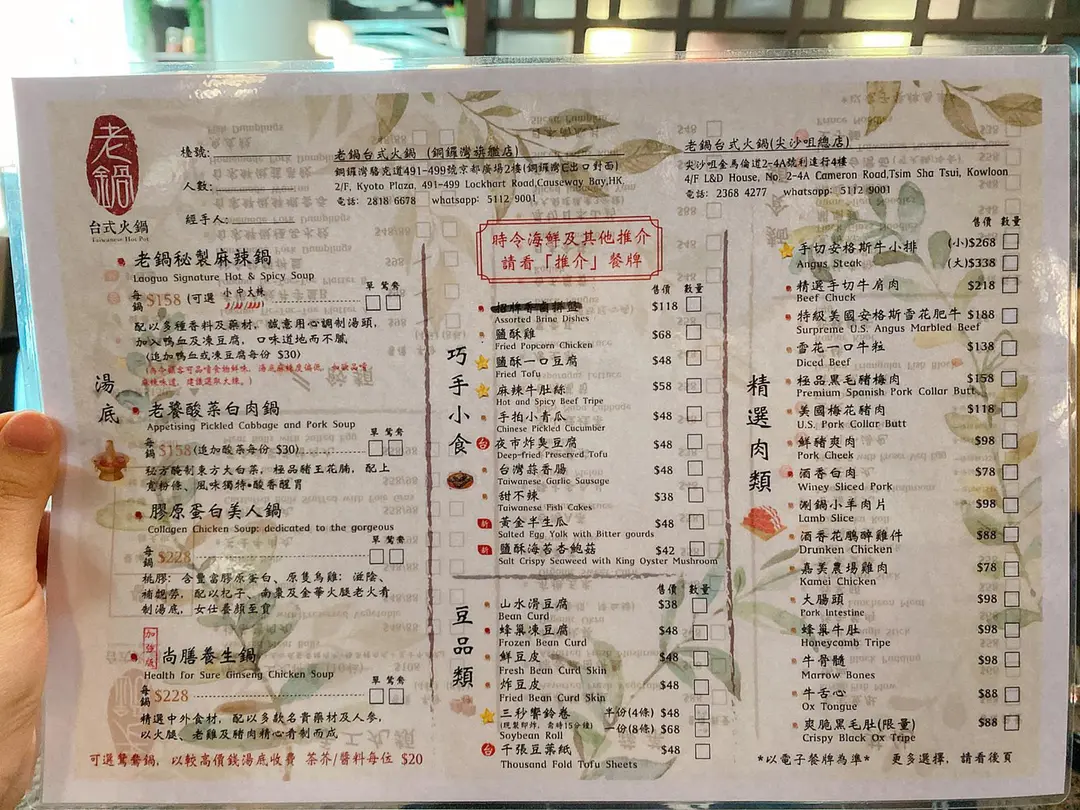 老鍋
台式火鍋
Taiwanese Hot Pot
檯號:
人數:
經手人:
老鍋台式火鍋 (銅鑼灣旗艦店)
銅鑼灣駱克道491-499號京都廣場2樓(銅鑼灣E出口對面)
2/F, Kyoto Plaza, 491-499 Lockhart Road,Causeway Bay,HK.
電話: 2818 6678 whatsapp: 5112 9001
老鍋台式火鍋(尖沙咀總店)
尖沙咀金馬倫道2-4A號利達行4樓
4/F L&D House, No. 2-4A Cameron Road,Tsim Sha Tsui, Kowloon
電話: 2368 4277 whatsapp: 5112 9001
湯底
老鍋秘製麻辣鍋
Laoguo Signature Hot & Spicy Soup
每鍋 $158 (可選 小 中 大辣
單 鴛鴦
配以多種香料及藥材, 誠意用心調制湯頭,
加入鴨血及凍豆腐, 口味道地而不膩
(追加鴨血或凍豆腐每份 $30)
老饕酸菜白肉鍋
Appetising Pickled Cabbage and Pork Soup
每鍋 $158(追加酸菜每份 $30)
單 鴛鴦
秘方醃制東方大白菜, 極品豬王花腩, 配上
寬粉條、風味獨特•酸香醒胃
膠原蛋白美人鍋
Collagen Chicken Soup: dedicated to the gorgeous
每鍋 $228
單 鴛鴦
桃膠: 含豐富膠原蛋白、原隻烏雞: 滋陰、
補虧勞, 配以杞子、南棗及金華火腿老火看
制湯底, 女仕養顏至寶
加強版
尚膳養生鍋
Health for Sure Ginseng Chicken Soup
每鍋 $228
單 鴛鴦
精選中外食材, 配以多款名貴藥材及人參,
以火腿、老雞及豬肉精心看制而成,
可選鴛鴦鍋, 以較高價錢湯底收費 茶芥/醬料每位 $20
時令海鮮及其他推介
請看「推介」餐牌
巧手小食
售價 數量
招牌香滷拼盤 $118
Assorted Brine Dishes
鹽酥雞 $68
Fried Popcorn Chicken
鹽酥一口豆腐 $48
Fried Tofu
麻辣牛肚絲 $58
Hot and Spicy Beef Tripe
手拍小青瓜 $48
Chinese Pickled Cucumber
台 夜市炸臭豆腐 $48
Deep-fried Preserved Tofu
台灣蒜香腸 $48
Taiwanese Garlic Sausage
甜不辣 $38
Taiwanese Fish Cakes
新 黃金半生瓜 $48
Salted Egg Yolk with Bitter gourds
新 鹽酥海苔杏鮑菇 $42
Salt Crispy Seaweed with King Oyster Mushroom
豆品類
售價 數量
山水滑豆腐 $38
Bean Curd
蜂巢凍豆腐 $48
Frozen Bean Curd
鮮豆皮 $48
Fresh Bean Curd Skin
炸豆皮 $48
Fried Bean Curd Skin
三秒響鈴卷 半份(4條) $48
(現製即炸, 需時15分鐘) 一份(8條) $68
Soybean Roll
台 千張豆葉紙 $48
Thousand Fold Tofu Sheets
精選肉類
售價 數量
手切安格斯牛小排 (小)$268
Angus Steak (大)$338
精選手切牛肩肉 $218
Beef Chuck
特級美國安格斯雪花肥牛 $188
Surpreme U.S. Angus Marbled Beef
雪花一口牛粒 $138
Diced Beef
極品黑毛豬梅肉 $158
Premium Spanish Pork Collar Butt
美國梅花豬肉 $118
U.S. Pork Collar Butt
鮮豬爽肉 $98
Pork Cheek
酒香白肉 $78
Winey Sliced Pork
涮鍋小羊肉片 $98
Lamb Slice
酒香花鵰醉雞件 $88
Drunken Chicken
嘉美農場雞肉 $78
Kamei Chicken
大腸頭 $98
Pork Intestine
蜂巢牛肚 $98
Honeycomb Tripe
牛骨髓 $98
Marrow Bones
牛舌心 $88
Ox Tongue
爽脆黑毛肚(限量) $88
Crispy Black Ox Tripe
*以電子餐牌為準* 更多選擇, 請看後頁